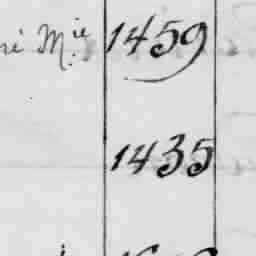 né M.ie 1459
1435